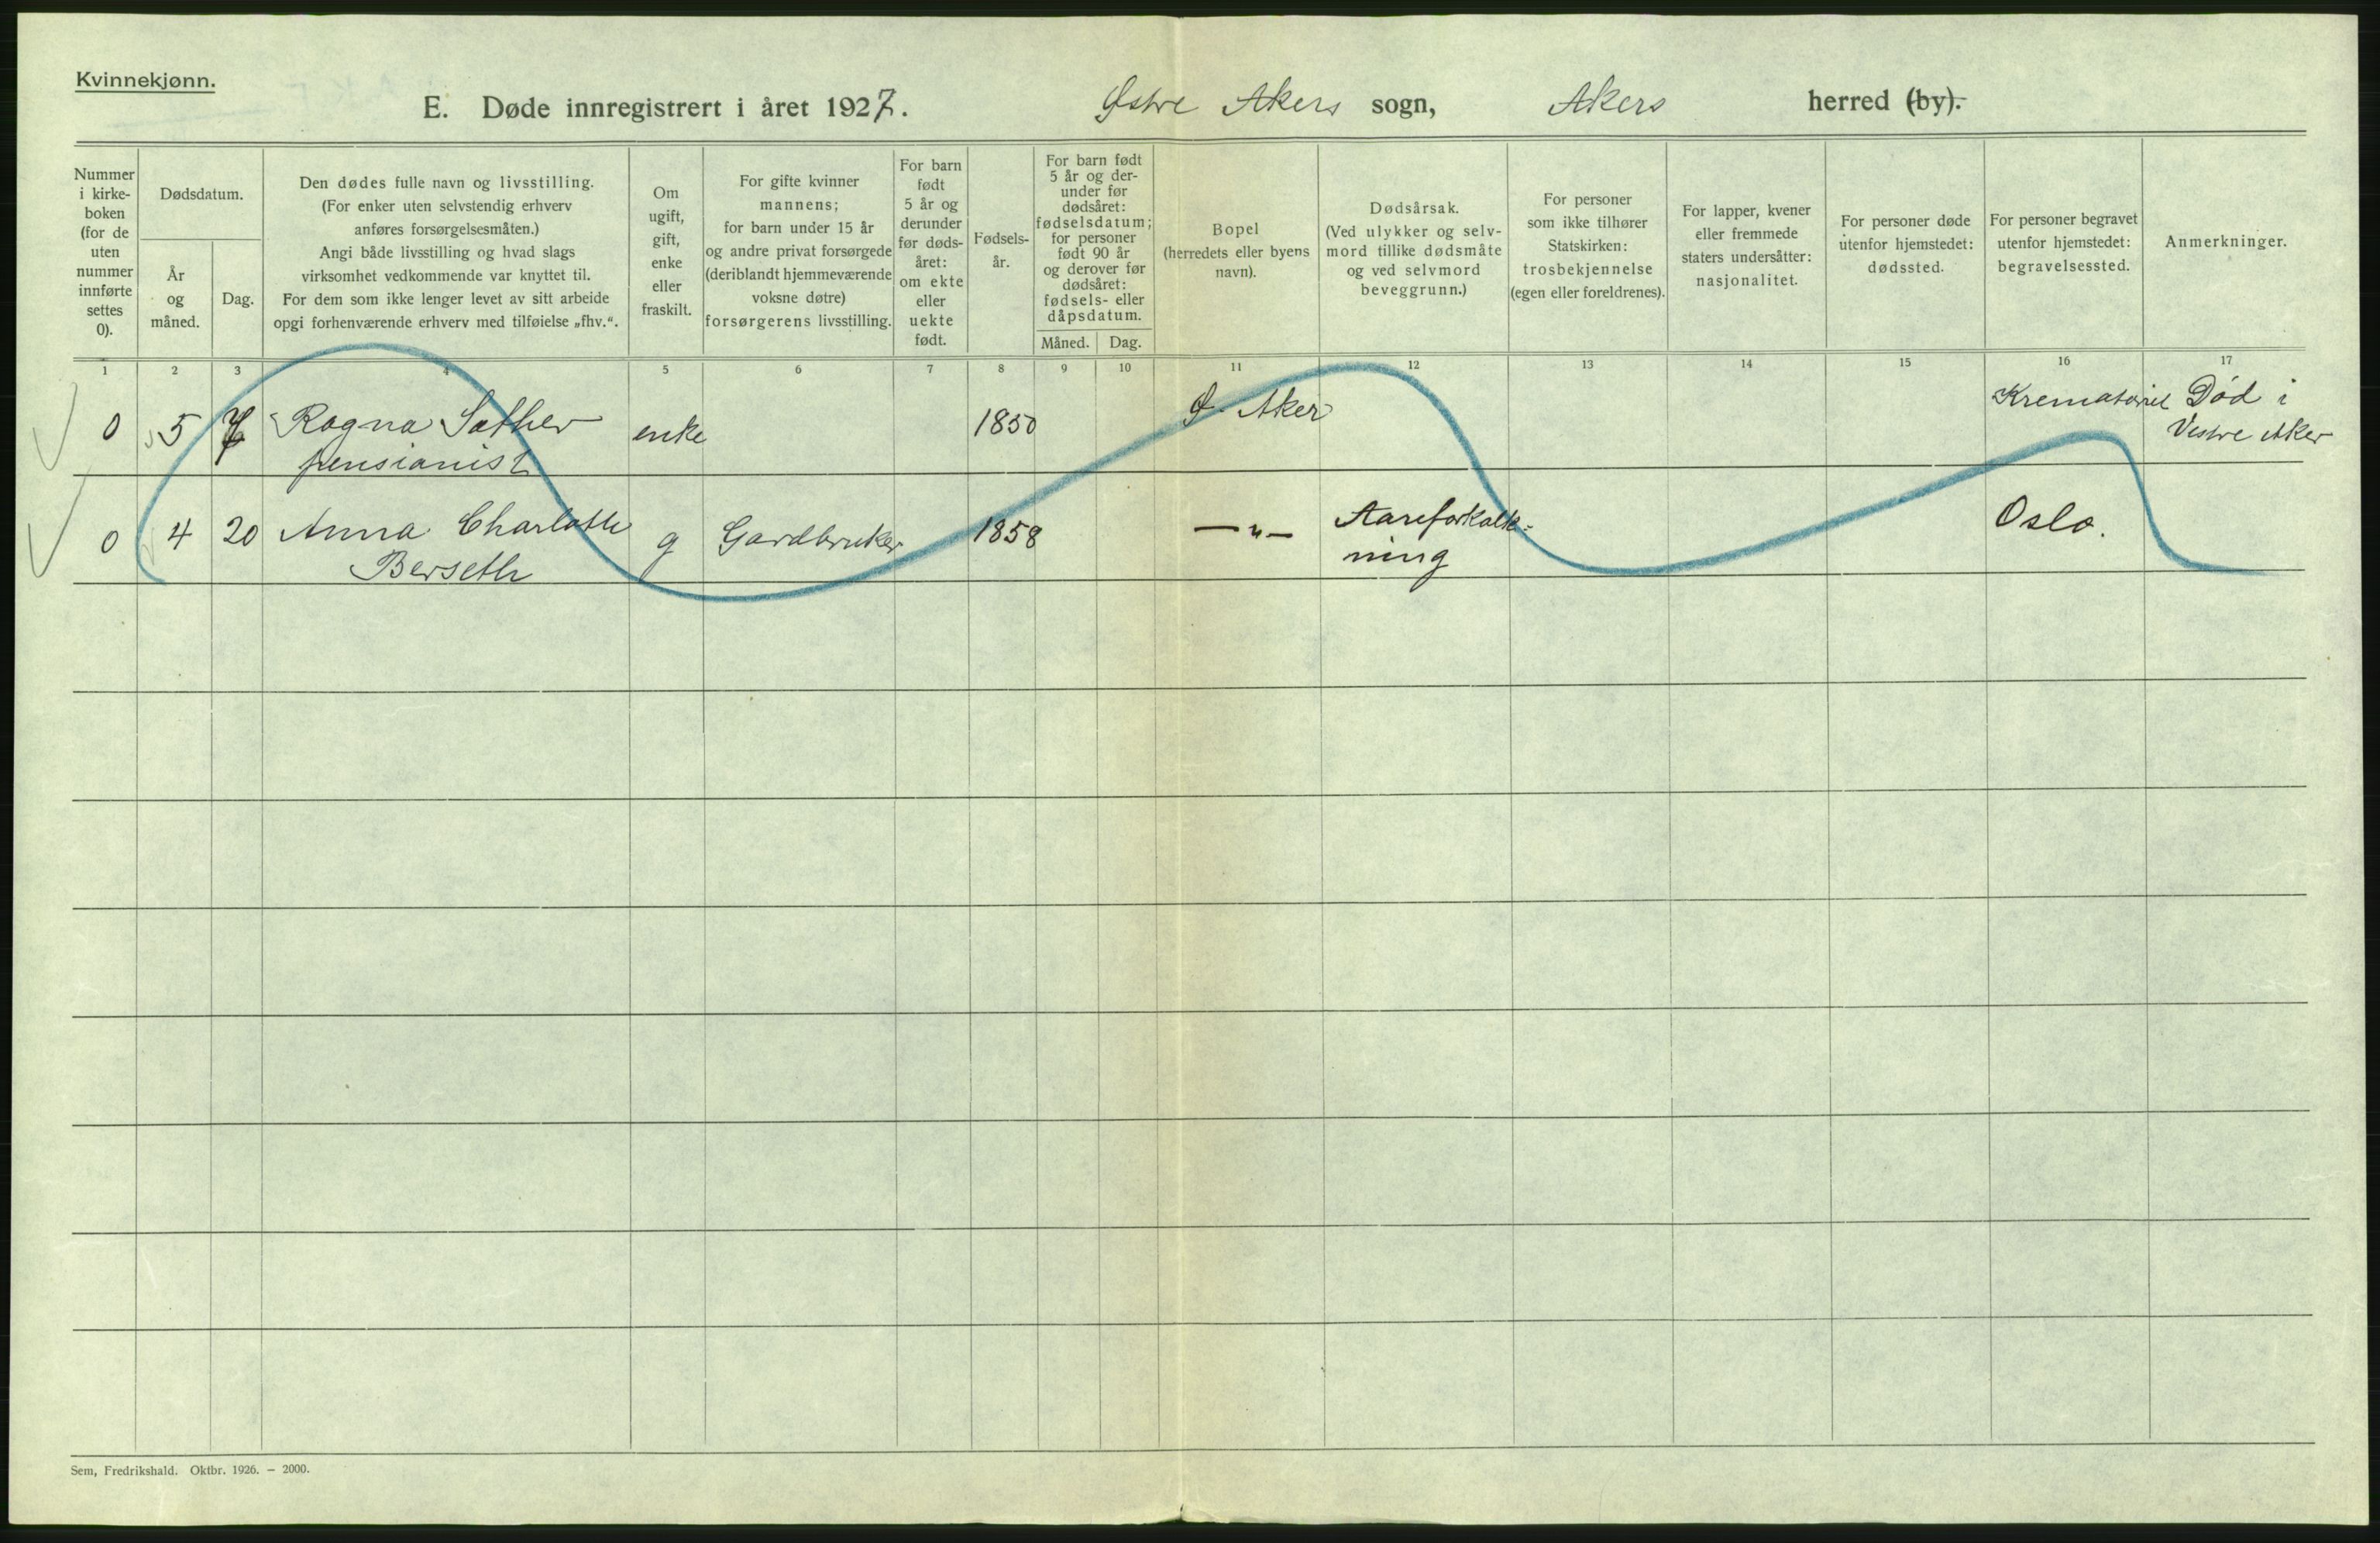 Kvinnekjønn.
E. Døde innregistrert i året 1927. Østre Akers sogn, Akers herred (by).
Nummer
i kirke-
boken
(for de
uten
nummer
innførte
settes
0).
Dødsdatum.
År
og
måned.
Dag.
Den dødes fulle navn og livsstilling.
(For enker uten selvstendig erhverv
anføres forsørgelsesmåten.)
Angi både livsstilling og hvad slags
virksomhet vedkommende var knyttet til.
For dem som ikke lenger levet av sitt arbeide
opgi forhenværende erhverv med tilføielse „fhv.“.
Om
ugift,
gift,
enke
eller
fraskilt.
For gifte kvinner
mannens;
for barn under 15 år
og andre privat forsørgede
(deriblandt hjemmeværende
voksne døtre)
forsørgerens livsstilling.
For barn
født
5 år og
derunder
før døds-
året:
om ekte
eller
uekte
født.
Fødsels-
år.
For barn født
5 år og der-
under før
dødsåret:
fødselsdatum;
for personer
født 90 år
og derover før
dødsåret:
fødsels- eller
dåpsdatum.
Måned. Dag.
Bopel
(herredets eller byens
navn).
Dødsårsak.
(Ved ulykker og selv-
mord tillike dødsmåte
og ved selvmord
beveggrunn.)
For personer
som ikke tilhører
Statskirken:
trosbekjennelse
(egen eller foreldrenes).
For lapper, kvener
eller fremmede
staters undersåtter:
nasjonalitet.
For personer døde
utenfor hjemstedet:
dødssted.
For personer begravet
utenfor hjemstedet:
begravelsessted.
Anmerkninger.
1 2 3 4 5 6 7 8 9 10 11 12 13 14 15 16 17
0 5 Ragna Sæther enke 1850 Ø. Aker Krematoriet Død i
pensionist Vestre Aker
0 4 20 Anna Charlotte g Gardbruker 1858 —"— Aareforkalk=
Berseth ning Oslo.
Sem, Fredrikshald. Oktbr. 1926. — 2000.